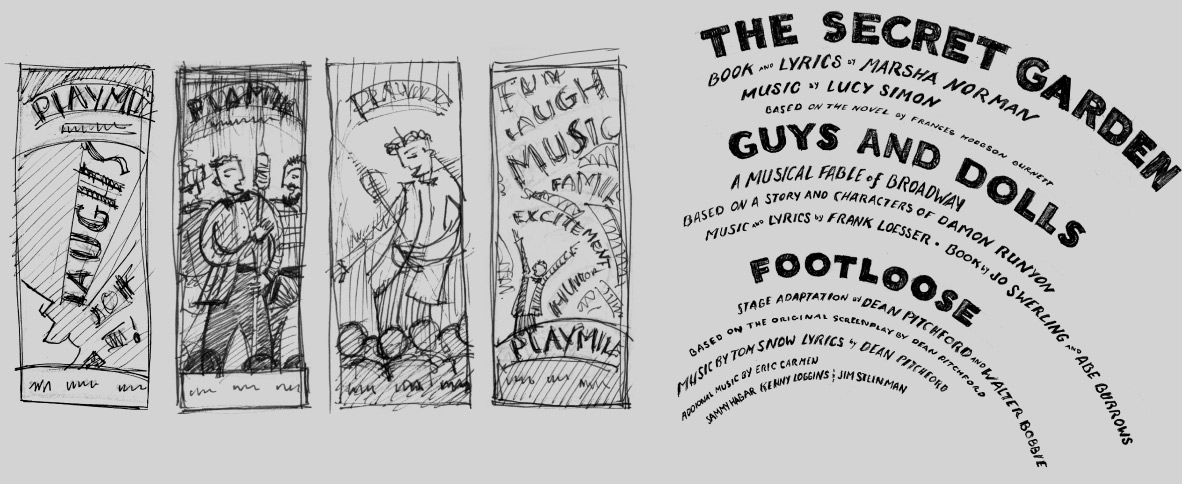 PLAYMILL
LAUGHS
PLAYMILL
PLAYMILL
FUN
LAUGH
MUSIC
FAMILY
EXCITEMENT
HUMOR
PLAYMILL
THE SECRET GARDEN
BOOK AND LYRICS BY MARSHA NORMAN
MUSIC BY LUCY SIMON
BASED ON THE NOVEL BY FRANCES HODGSON BURNETT
GUYS AND DOLLS
A MUSICAL FABLE of BROADWAY
BASED ON A STORY AND CHARACTERS OF DAMON RUNYON
MUSIC AND LYRICS by FRANK LOESSER • BOOK by JO SWERLING AND ABE BURROWS
FOOTLOOSE
STAGE ADAPTATION BY DEAN PITCHFORD AND WALTER BOBBIE
BASED ON THE ORIGINAL SCREENPLAY BY DEAN PITCHFORD
MUSIC BY TOM SNOW LYRICS by DEAN PITCHFORD
ADDIONAL MUSIC BY ERIC CARMEN
SAMMY HAGAR KENNY LOGGINS & JIM STEINMAN